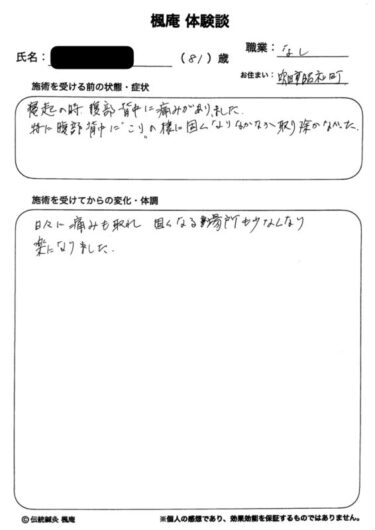 楓庵 体験談
氏名：
（81）歳
職業：なし
お住まい：吹田市昭和町
施術を受ける前の状態・症状
寝起の時 腹部 背中に痛みがありました.
特に腹部 背中に"こり"の様に固くなりなかなか取り除かなかった.
施術を受けてからの変化・体調
日々に痛みも取れ 固くなる場所も少なくなり
楽になりました.
© 伝統鍼灸 楓庵
※個人の感想であり、効果効能を保証するものではありません。